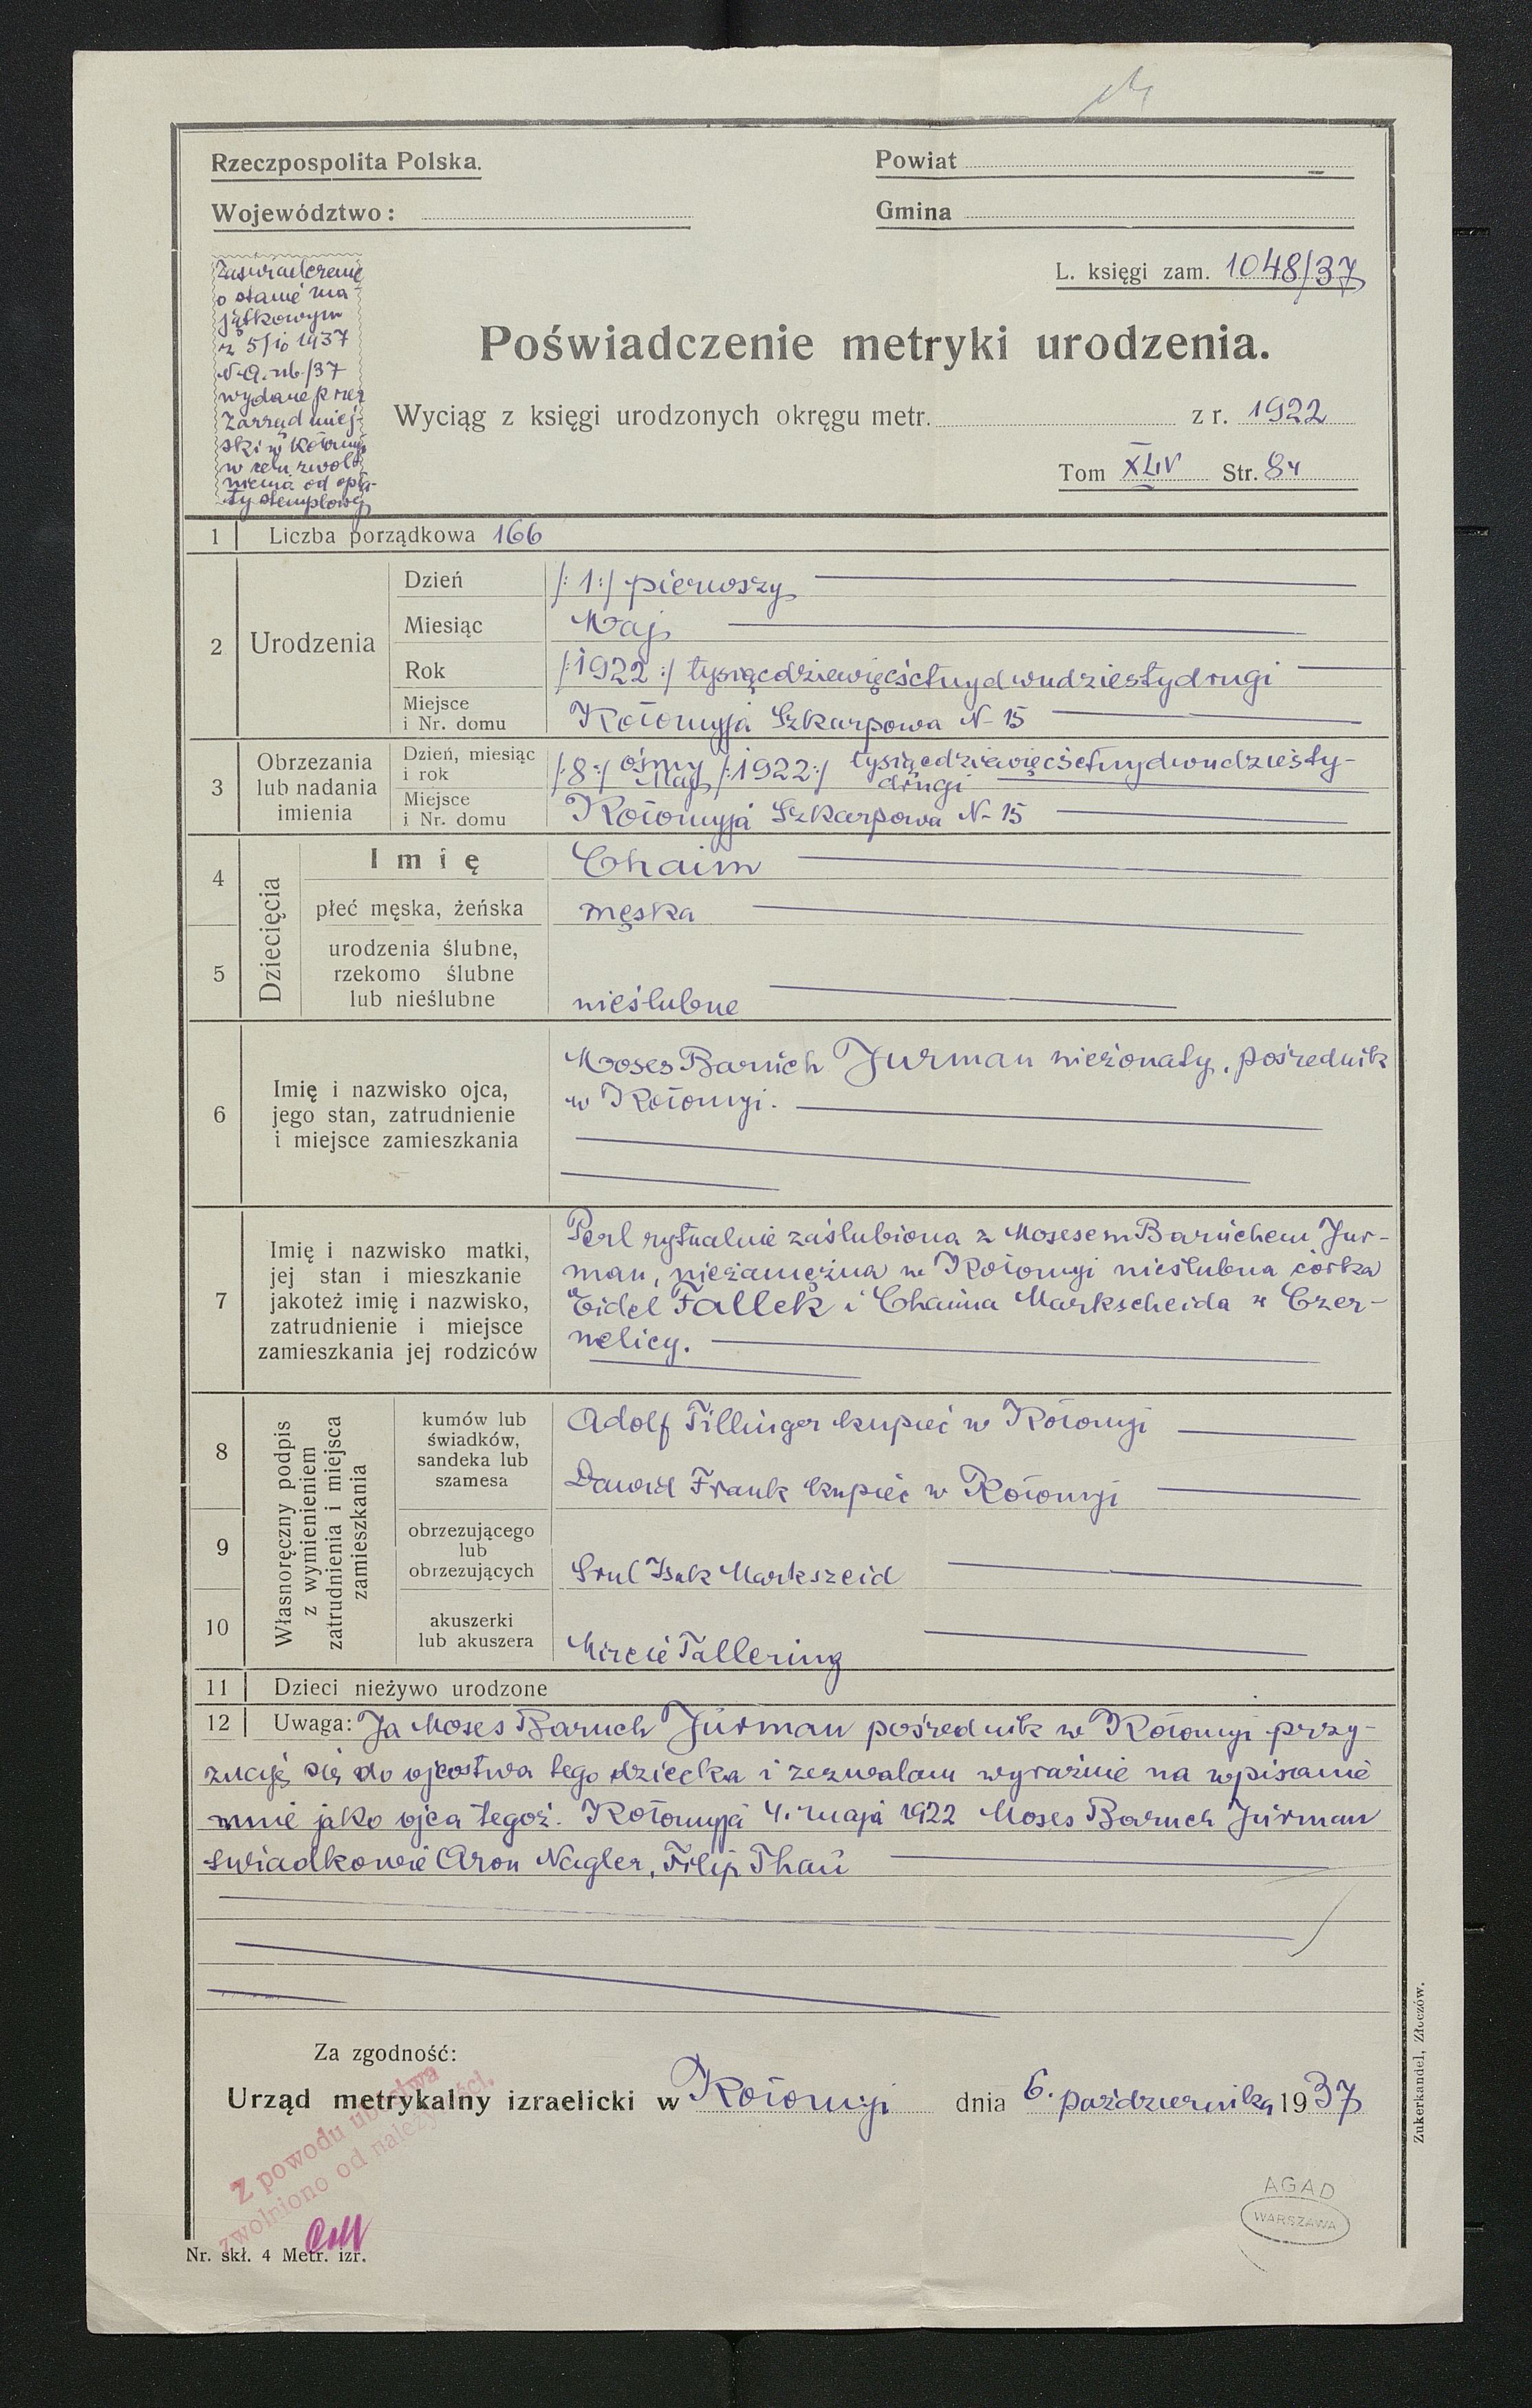 Rzeczpospolita Polska.
Powiat
Województwo:
Gmina
L. księgi zam. 1048/37
Zaświadczenie
o stanie ma-
jątkowym
z 5/10 1937
wydane przez
Zarząd miej-
ski w Kołomyi
w celu zwol-
nienia od opła-
ty stemplowej
Poświadczenie metryki urodzenia.
Wyciąg z księgi urodzonych okręgu metr. z r. 1922
Tom XLIV Str. 84
1 Liczba porządkowa 166
2 Urodzenia
Dzień /:1:/ pierwszy
Miesiąc Maj
Rok /:1922:/ tysiącdziewięćsetnydwudziestydrugi
Miejsce
i Nr. domu Kołomyja Szkarpowa N- 15
3 Obrzezania
lub nadania
imienia
Dzień, miesiąc
i rok /:8:/ ósmy Maj /:1922:/ tysiącdziewięćsetnydwudziesty-
drugi
Miejsce
i Nr. domu Kołomyja Szkarpowa N- 15
Dziecięcia
4 Imię Chaim
płeć męska, żeńska męska
5 urodzenia ślubne,
rzekomo ślubne
lub nieślubne nieślubne
6 Imię i nazwisko ojca,
jego stan, zatrudnienie
i miejsce zamieszkania
Moses Baruch Jurman nieżonaty, pośrednik
w Kołomyi.
7 Imię i nazwisko matki,
jej stan i mieszkanie
jakoteż imię i nazwisko,
zatrudnienie i miejsce
zamieszkania jej rodziców
Perl rytualnie zaślubiona z Mosesem Baruchem Jur-
man, niezamężna w Kołomyi nieślubna córka
Eidel Fallek i Chaima Markscheida z Czer-
nelicy.
Własnoręczny podpis
z wymienieniem
zatrudnienia i miejsca
zamieszkania
8 kumów lub
świadków,
sandeka lub
szamesa
Adolf Tillinger kupiec w Kołomyi
Dawid Frank kupiec w Kołomyi
9 obrzezującego
lub
obrzezujących
Srul Isak Markszeid
10 akuszerki
lub akuszera
Tallering
11 Dzieci nieżywo urodzone
12 Uwaga: Ja Moses Baruch Jurman pośrednik w Kołomyi przy-
znaję się do ojcostwa tego dziecka i zezwalam wyraźnie na wpisanie
mnie jako ojca tegoż. Kołomyja 4. maja 1922 Moses Baruch Jurman
świadkowie Aron Nagler, Filip Thau
Za zgodność:
Urząd metrykalny izraelicki w Kołomyi dnia 6. października 1937
Z powodu ubóstwa
zwolniono od należytości.
AGAD
WARSZAWA
Nr. skł. 4 Metr. izr.
Zukerkandel, Złoczów.